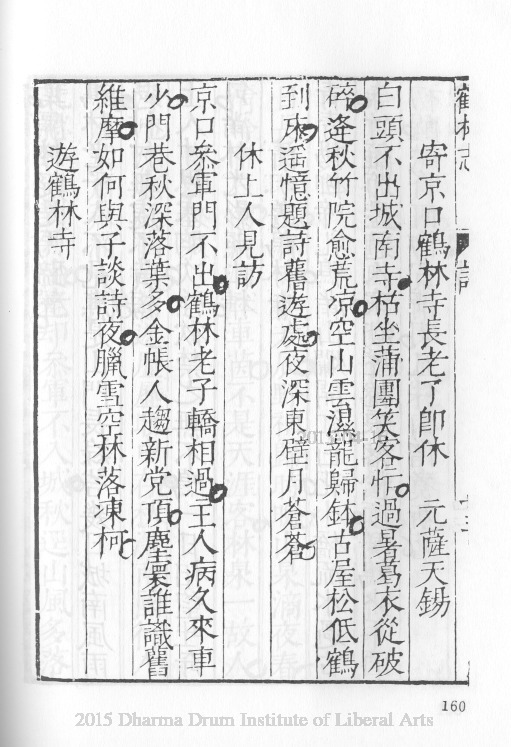 鶴林志
詩
寄京口鶴林寺長老了即休 元薩天錫
白頭不出城南寺枯坐蒲團笑客忙過暑葛衣從破
碎逢秋竹院愈荒凉空山雲濕龍歸鉢古屋松低鶴
到床遥憶題詩舊遊處夜深東壁月蒼蒼
休上人見訪
京口叅軍門不出鶴林老子轎相過主人病久來車
少門巷秋深落葉多金帳人趨新党頂塵寰誰識舊
維摩如何與子談詩夜臘雪空林落凍柯
遊鶴林寺
160
2015 Dharma Drum Institute of Liberal Arts